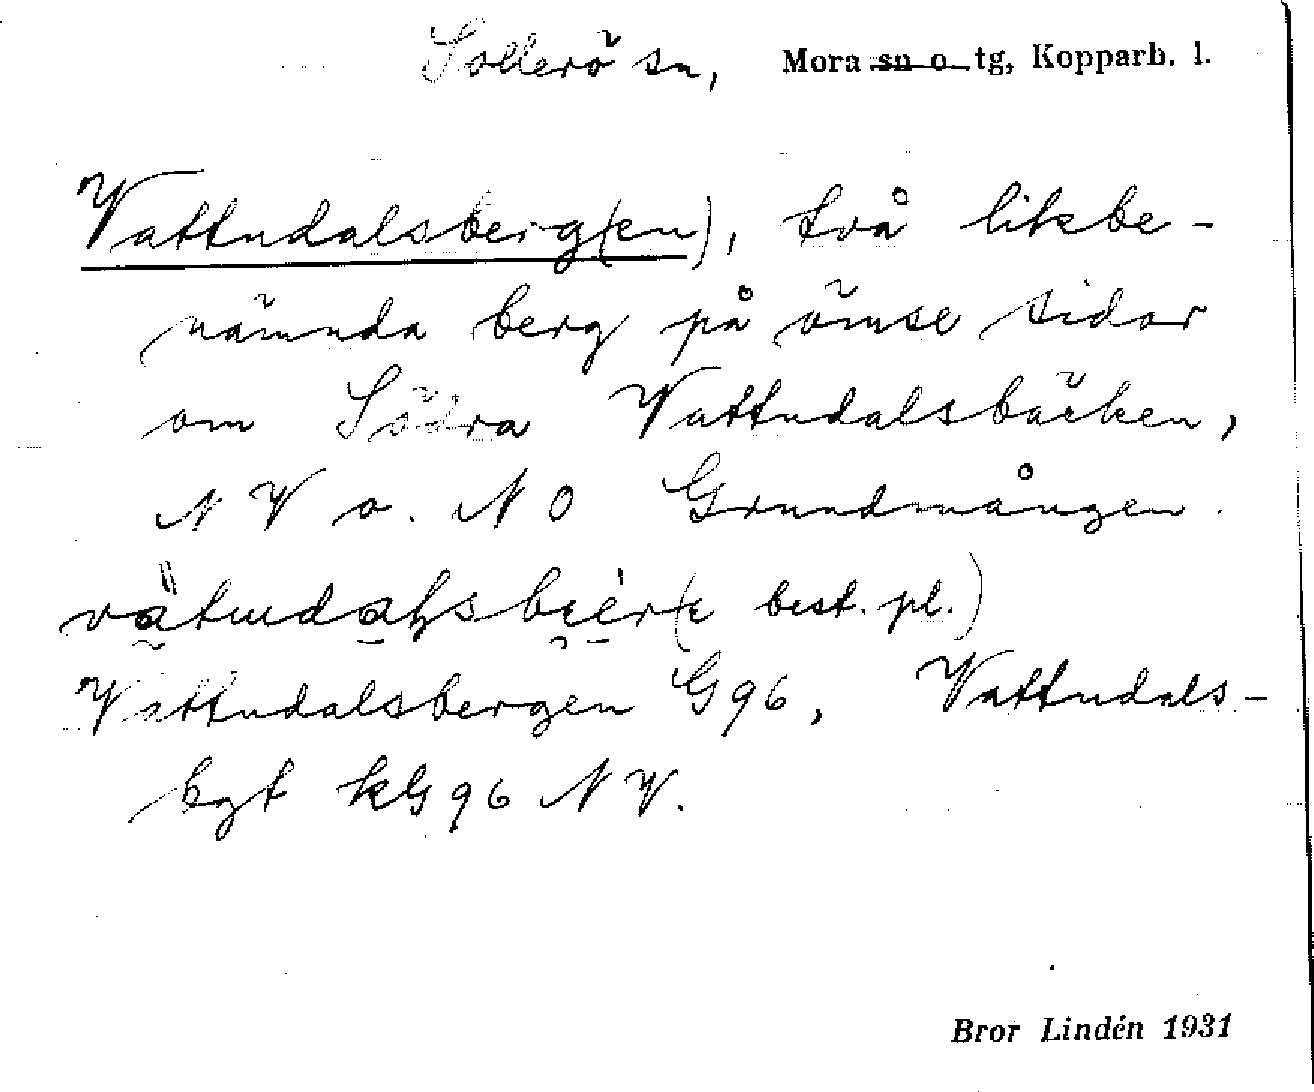 Sollerö sn, Mora sn o tg, Kopparb. l.
Vattudalsberg(en), två likbe-
nämnda berg på ömse sidor
om Södra Vattudalsbäcken,
NV o. NO Grundmången.
(e best. pl.)
Vattudalsbergen G96, Vattudals-
bgt kG96 NV.
Bror Lindén 1931